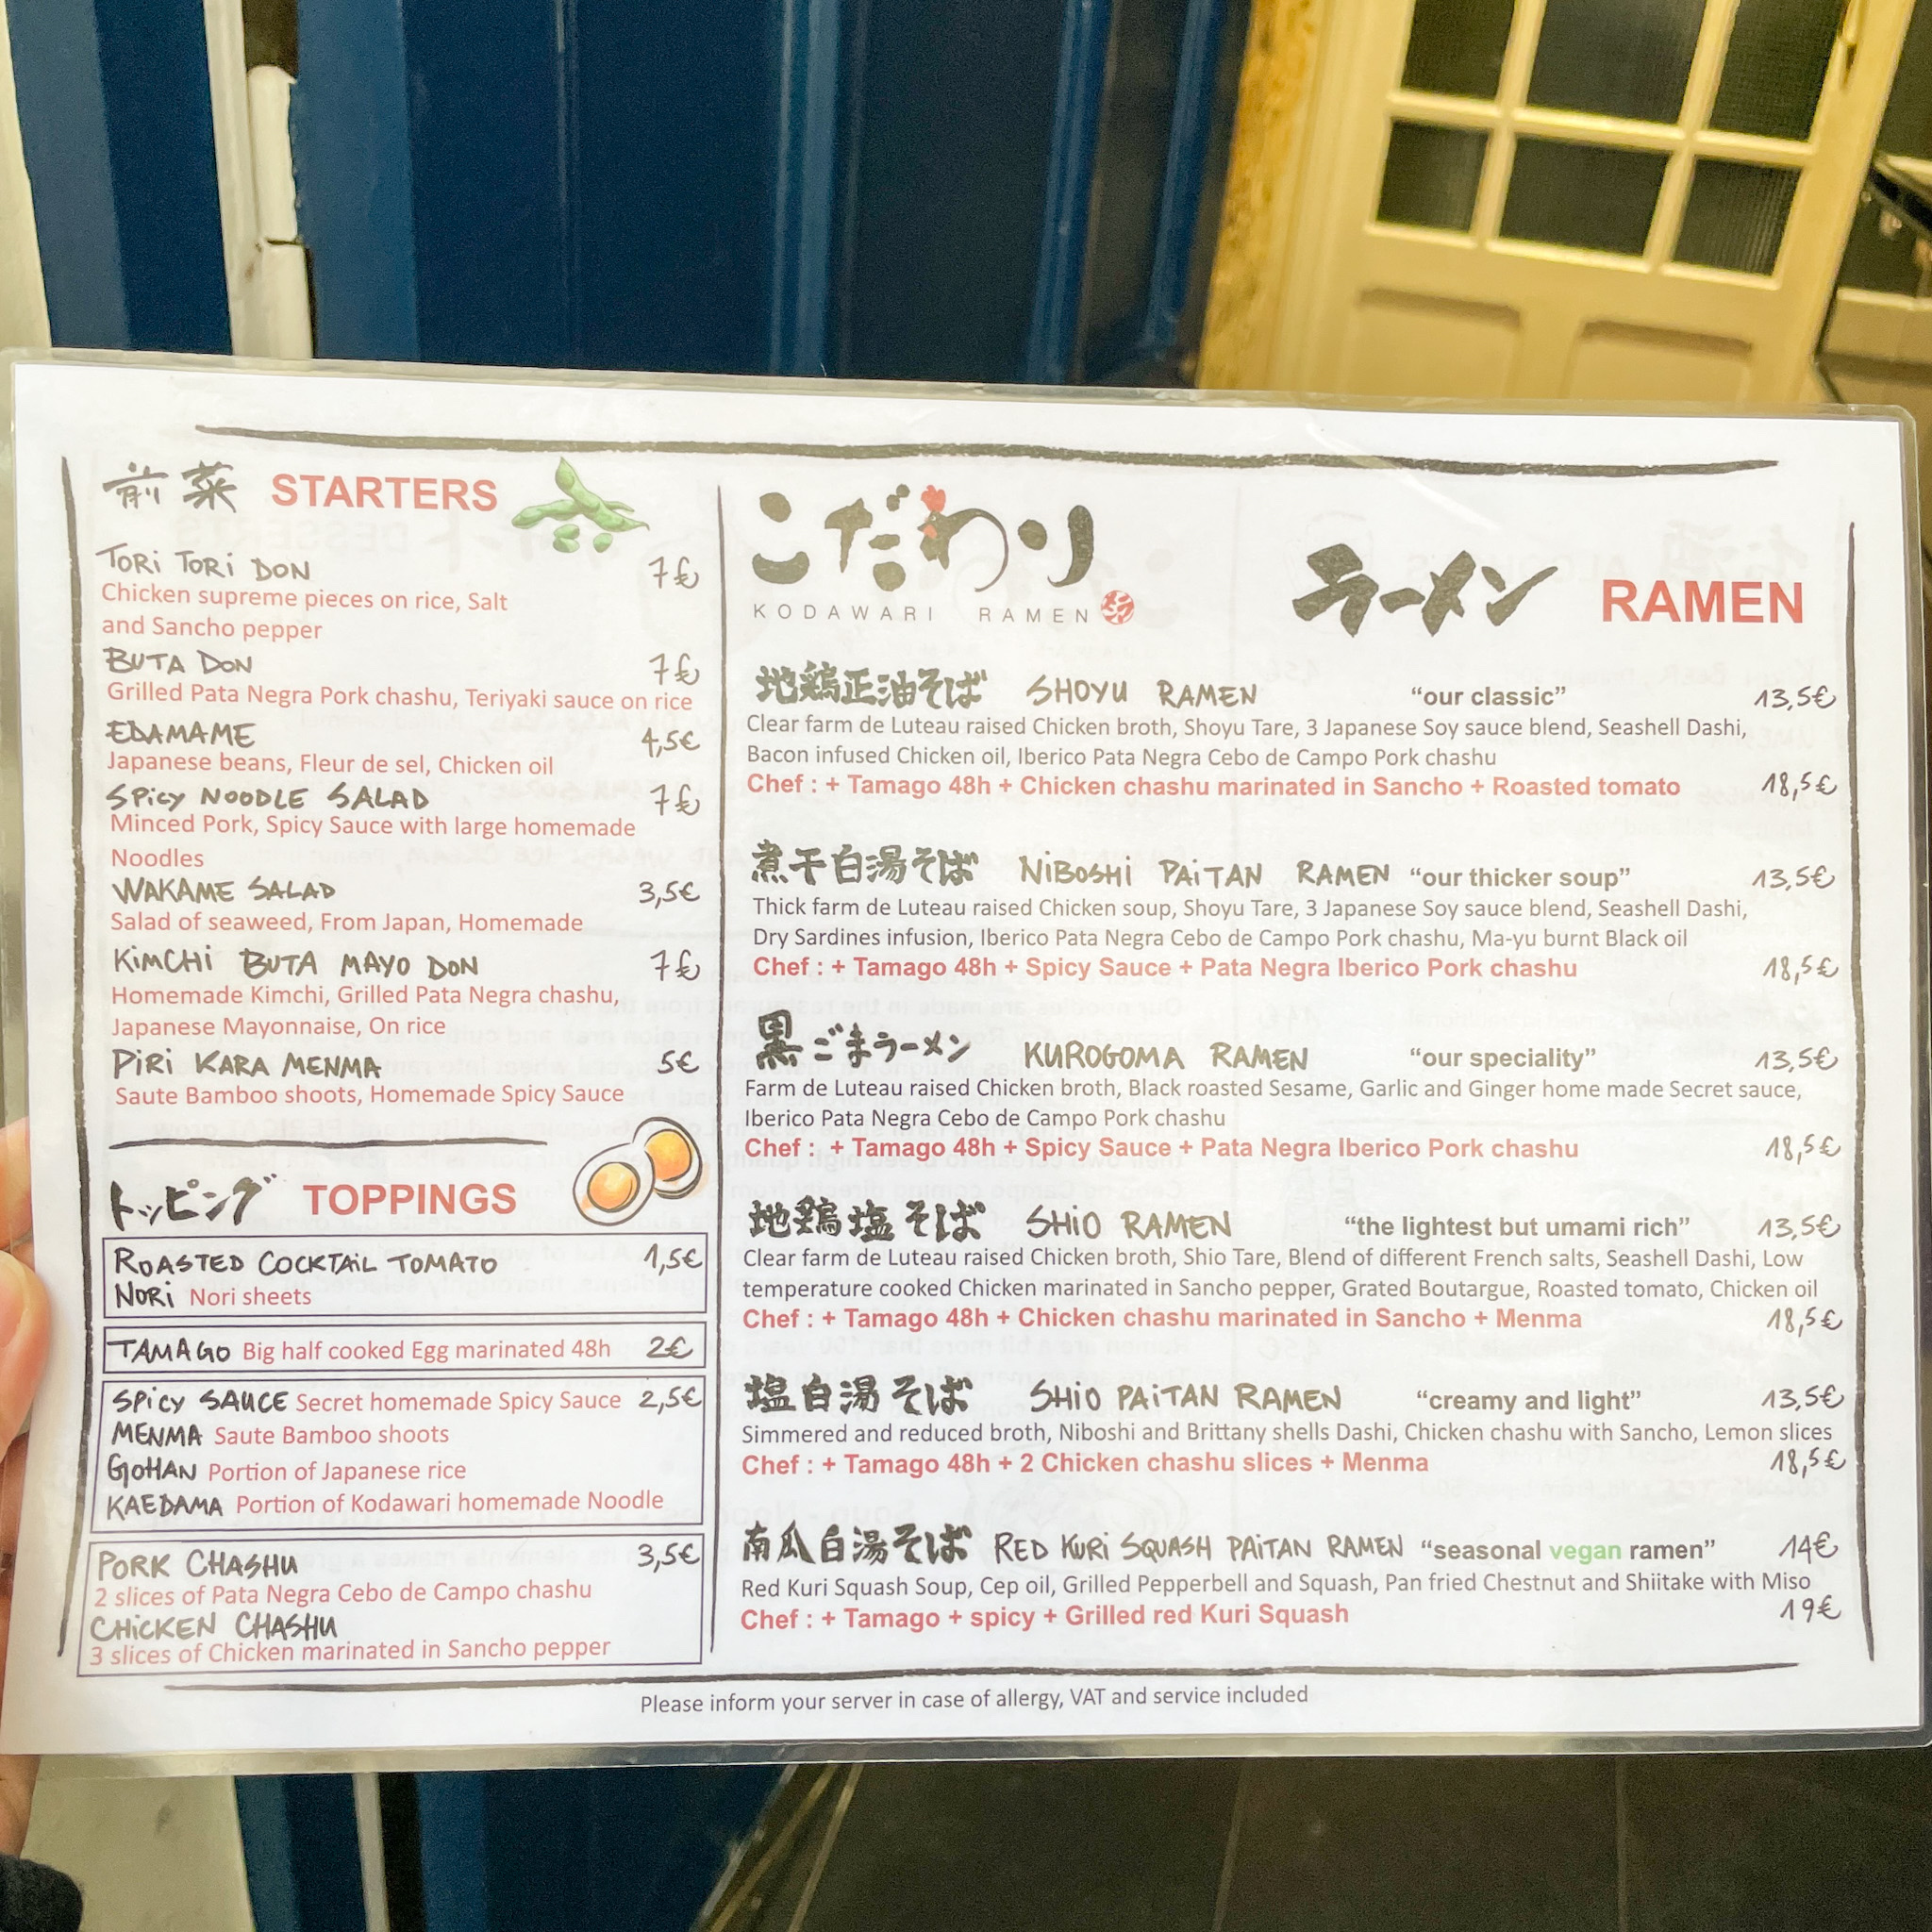 前菜 STARTERS
TORI TORI DON 7€
Chicken supreme pieces on rice, Salt
and Sancho pepper
BUTA DON 7€
Grilled Pata Negra Pork chashu, Teriyaki sauce on rice
EDAMAME 4,5€
Japanese beans, Fleur de sel, Chicken oil
SPICY NOODLE SALAD 7€
Minced Pork, Spicy Sauce with large homemade
Noodles
WAKAME SALAD 3,5€
Salad of seaweed, From Japan, Homemade
KIMCHI BUTA MAYO DON 7€
Homemade Kimchi, Grilled Pata Negra chashu,
Japanese Mayonnaise, On rice
PIRI KARA MENMA 5€
Saute Bamboo shoots, Homemade Spicy Sauce
トッピング TOPPINGS
ROASTED COCKTAIL TOMATO 1,5€
NORI Nori sheets
TAMAGO Big half cooked Egg marinated 48h 2€
SPICY SAUCE Secret homemade Spicy Sauce 2,5€
MENMA Saute Bamboo shoots
GOHAN Portion of Japanese rice
KAEDAMA Portion of Kodawari homemade Noodle
PORK CHASHU 3,5€
2 slices of Pata Negra Cebo de Campo chashu
CHICKEN CHASHU
3 slices of Chicken marinated in Sancho pepper
こだわり
KODAWARI RAMEN
ラーメン RAMEN
地鶏正油そば SHOYU RAMEN “our classic” 13,5€
Clear farm de Luteau raised Chicken broth, Shoyu Tare, 3 Japanese Soy sauce blend, Seashell Dashi,
Bacon infused Chicken oil, Iberico Pata Negra Cebo de Campo Pork chashu
Chef : + Tamago 48h + Chicken chashu marinated in Sancho + Roasted tomato 18,5€
煮干白湯そば NIBOSHI PAITAN RAMEN “our thicker soup” 13,5€
Thick farm de Luteau raised Chicken soup, Shoyu Tare, 3 Japanese Soy sauce blend, Seashell Dashi,
Dry Sardines infusion, Iberico Pata Negra Cebo de Campo Pork chashu, Ma-yu burnt Black oil
Chef : + Tamago 48h + Spicy Sauce + Pata Negra Iberico Pork chashu 18,5€
黒ごまラーメン KUROGOMA RAMEN “our speciality” 13,5€
Farm de Luteau raised Chicken broth, Black roasted Sesame, Garlic and Ginger home made Secret sauce,
Iberico Pata Negra Cebo de Campo Pork chashu
Chef : + Tamago 48h + Spicy Sauce + Pata Negra Iberico Pork chashu 18,5€
地鶏塩そば SHIO RAMEN “the lightest but umami rich” 13,5€
Clear farm de Luteau raised Chicken broth, Shio Tare, Blend of different French salts, Seashell Dashi, Low
temperature cooked Chicken marinated in Sancho pepper, Grated Boutargue, Roasted tomato, Chicken oil
Chef : + Tamago 48h + Chicken chashu marinated in Sancho + Menma 18,5€
塩白湯そば SHIO PAITAN RAMEN “creamy and light” 13,5€
Simmered and reduced broth, Niboshi and Brittany shells Dashi, Chicken chashu with Sancho, Lemon slices
Chef : + Tamago 48h + 2 Chicken chashu slices + Menma 18,5€
南瓜白湯そば RED KURI SQUASH PAITAN RAMEN “seasonal vegan ramen” 14€
Red Kuri Squash Soup, Cep oil, Grilled Pepperbell and Squash, Pan fried Chestnut and Shiitake with Miso
Chef : + Tamago + spicy + Grilled red Kuri Squash 19€
Please inform your server in case of allergy, VAT and service included